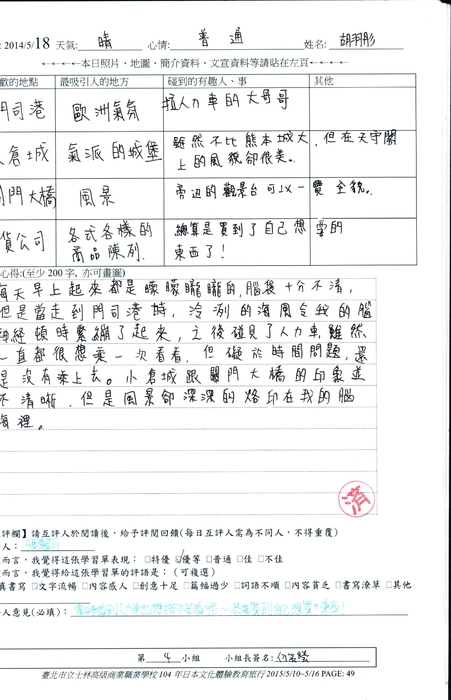 : 2014/5/18 天氣: 晴 心情: 普通 姓名: 胡玥彤
←←←←本日照片、地圖、簡介資料、文宣資料等請貼在左頁←←←←
歡的地點 最吸引人的地方 碰到的有趣人、事 其他
門司港 歐洲氣氛 拉人力車的大哥哥
倉城 氣派的城堡 雖然不比熊本城大、但在天守閣
上的風貌卻很美。
門大橋 風景 旁邊的觀景台可以一覽全貌。
貨公司 各式各樣的 總算是買到了自己想要的
商品陳列. 東西了!
心得:(至少 200 字, 亦可畫圖)
每天早上起來都是矇矇矓矓的,腦袋十分不清,
但是當走到門司港時,冷冽的海風令我的腦
神經頓時緊繃了起來,之後碰見了人力車,雖然
一直都很想乘一次看看,但礙於時間問題,還
是沒有乘上去。小倉城跟關門大橋的印象並
不清晰,但是風景卻深深的烙印在我的腦
海裡。
済
評欄】請互評人於閱讀後,給予評閱回饋(每日互評人需為不同人,不得重覆)
人:
而言,我覺得這張學習單表現: □特優 □優等 □普通 □佳 □不佳
而言,我覺得給這張學習單的評語是: (可複選)
真書寫 □文字流暢 □內容感人 □創意十足 □篇幅過少 □詞語不順 □內容貧乏 □書寫潦草 □其他
人意見(必填):
第 4 小組 小組長簽名:
臺北市立士林高級商業職業學校 104 年日本文化體驗教育旅行 2015/5/10~5/16 PAGE: 49